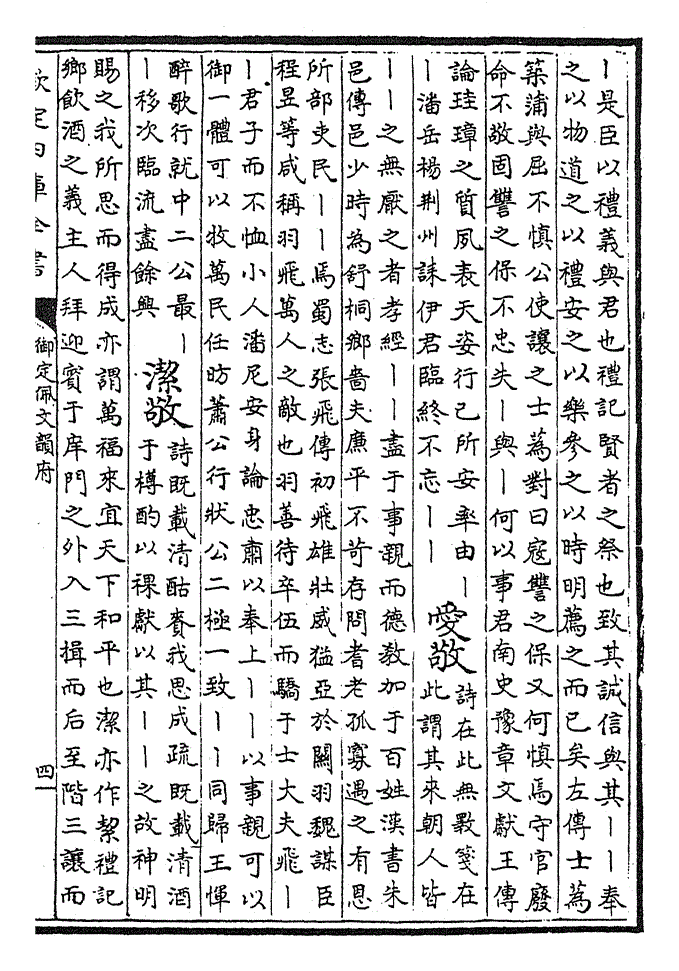 ｜是臣以禮義與君也禮記賢者之祭也致其誠信與其｜｜奉
之以物道之以禮安之以樂參之以時明薦之而已矣左傳士為
築蒲與屈不慎公使讓之士為對曰寇讐之保又何慎焉守官廢
命不敬固讐之保不忠失｜與｜何以事君南史豫章文獻王傳
論珪璋之質夙表天姿行己所安率由｜
｜潘岳楊荆州誄伊君臨終不忘｜｜
愛敬
詩在此無斁箋在
此謂其來朝人皆
｜｜之無厭之者孝經｜｜盡于事親而德敎加于百姓漢書朱
邑傳邑少時為舒桐鄉嗇夫廉平不苛存問耆老孤寡遇之有恩
所部吏民｜｜焉蜀志張飛傳初飛雄壯威猛亞於關羽魏謀臣
程昱等咸稱羽飛萬人之敵也羽善待卒伍而驕于士大夫飛｜
｜君子而不恤小人潘尼安身論忠肅以奉上｜｜以事親可以
御一體可以牧萬民任昉蕭公行狀公二極一致｜｜同歸王惲
醉歌行就中二公最｜
｜移次臨流盡餘興
潔敬
詩既載清酤賚我思成疏既載清酒
于樽酌以祼獻以其｜｜之故神明
賜之我所思而得成亦謂萬福來宜天下和平也潔亦作絜禮記
鄉飲酒之義主人拜迎賓于庠門之外入三揖而后至階三讓而
欽定四庫全書
御定佩文韻府
四